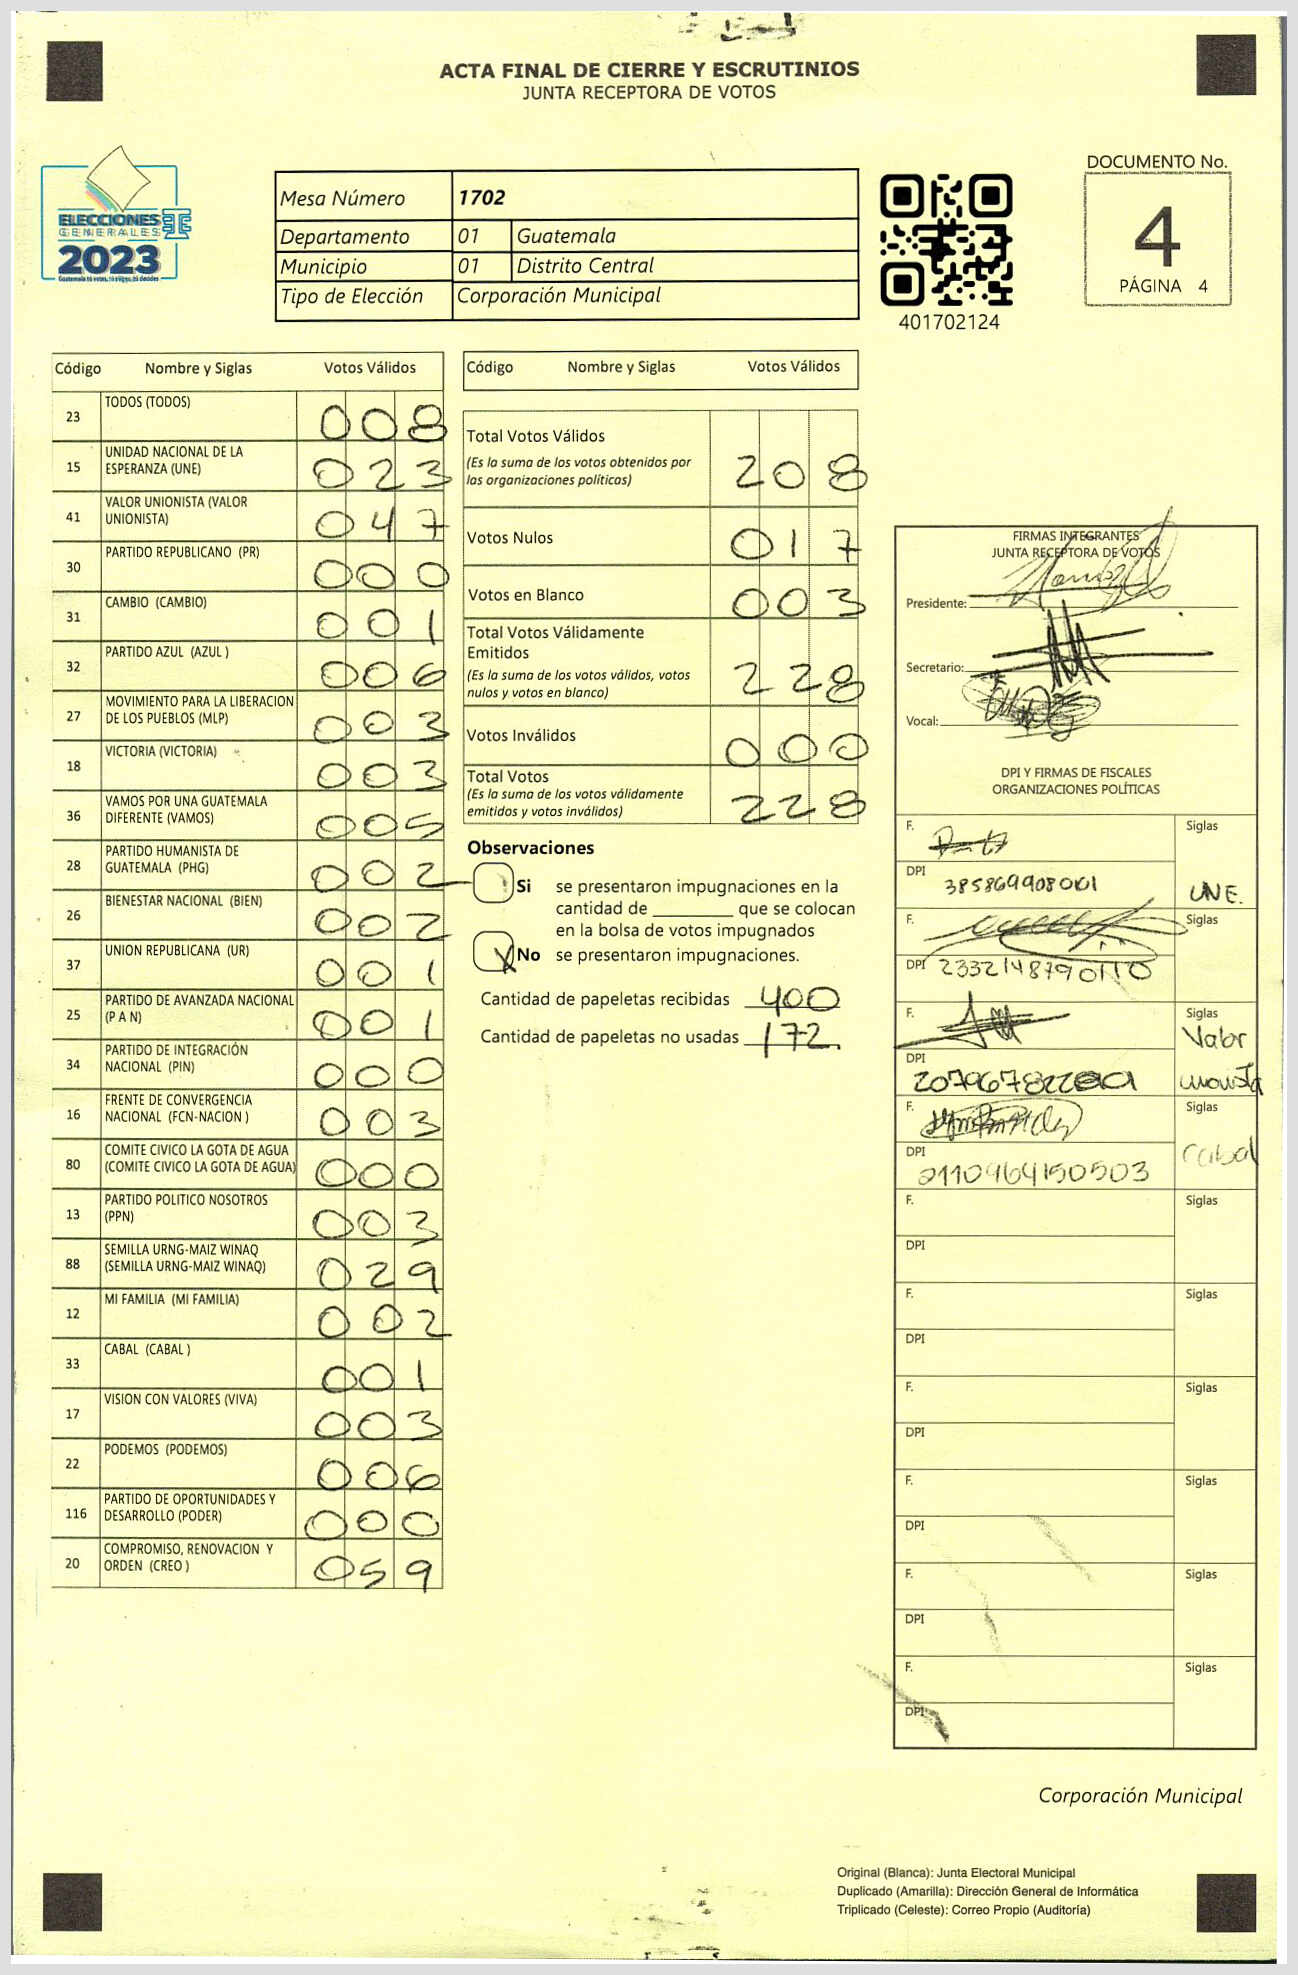 ACTA FINAL DE CIERRE Y ESCRUTINIOS
JUNTA RECEPTORA DE VOTOS
ELECCIONES
GENERALES
2023
Guatemala tú votas, tú eliges, tú decides
Mesa Número 1702
Departamento 01 Guatemala
Municipio 01 Distrito Central
Tipo de Elección Corporación Municipal
401702124
DOCUMENTO No.
4
PÁGINA 4
Código Nombre y Siglas Votos Válidos
23 TODOS (TODOS) 008
15 UNIDAD NACIONAL DE LA
ESPERANZA (UNE) 023
41 VALOR UNIONISTA (VALOR
UNIONISTA) 047
30 PARTIDO REPUBLICANO (PR) 000
31 CAMBIO (CAMBIO) 001
32 PARTIDO AZUL (AZUL ) 006
27 MOVIMIENTO PARA LA LIBERACION
DE LOS PUEBLOS (MLP) 003
18 VICTORIA (VICTORIA) 003
36 VAMOS POR UNA GUATEMALA
DIFERENTE (VAMOS) 005
28 PARTIDO HUMANISTA DE
GUATEMALA (PHG) 002
26 BIENESTAR NACIONAL (BIEN) 002
37 UNION REPUBLICANA (UR) 001
25 PARTIDO DE AVANZADA NACIONAL
(P A N) 001
34 PARTIDO DE INTEGRACIÓN
NACIONAL (PIN) 000
16 FRENTE DE CONVERGENCIA
NACIONAL (FCN-NACION ) 003
80 COMITE CIVICO LA GOTA DE AGUA
(COMITE CIVICO LA GOTA DE AGUA) 000
13 PARTIDO POLITICO NOSOTROS
(PPN) 003
88 SEMILLA URNG-MAIZ WINAQ
(SEMILLA URNG-MAIZ WINAQ) 029
12 MI FAMILIA (MI FAMILIA) 002
33 CABAL (CABAL ) 001
17 VISION CON VALORES (VIVA) 003
22 PODEMOS (PODEMOS) 006
116 PARTIDO DE OPORTUNIDADES Y
DESARROLLO (PODER) 000
20 COMPROMISO, RENOVACION Y
ORDEN (CREO ) 059
Código Nombre y Siglas Votos Válidos
Total Votos Válidos
(Es la suma de los votos obtenidos por
las organizaciones políticas) 208
Votos Nulos 017
Votos en Blanco 003
Total Votos Válidamente
Emitidos
(Es la suma de los votos válidos, votos
nulos y votos en blanco) 228
Votos Inválidos 000
Total Votos
(Es la suma de los votos válidamente
emitidos y votos inválidos) 228
Observaciones
Si se presentaron impugnaciones en la
cantidad de ________ que se colocan
en la bolsa de votos impugnados
X No se presentaron impugnaciones.
Cantidad de papeletas recibidas 400
Cantidad de papeletas no usadas 172
FIRMAS INTEGRANTES
JUNTA RECEPTORA DE VOTOS
Presidente:
Secretario:
Vocal:
DPI Y FIRMAS DE FISCALES
ORGANIZACIONES POLÍTICAS
F. Siglas
DPI 385869908001 UNE.
F. Siglas
DPI 2332148790110
F. Siglas
Valor
DPI
unionista
F. Siglas
Cabal
DPI
2110964150503
F. Siglas
DPI
F. Siglas
DPI
F. Siglas
DPI
F. Siglas
DPI
F. Siglas
DPI
F. Siglas
DPI
Corporación Municipal
Original (Blanca): Junta Electoral Municipal
Duplicado (Amarilla): Dirección General de Informática
Triplicado (Celeste): Correo Propio (Auditoría)